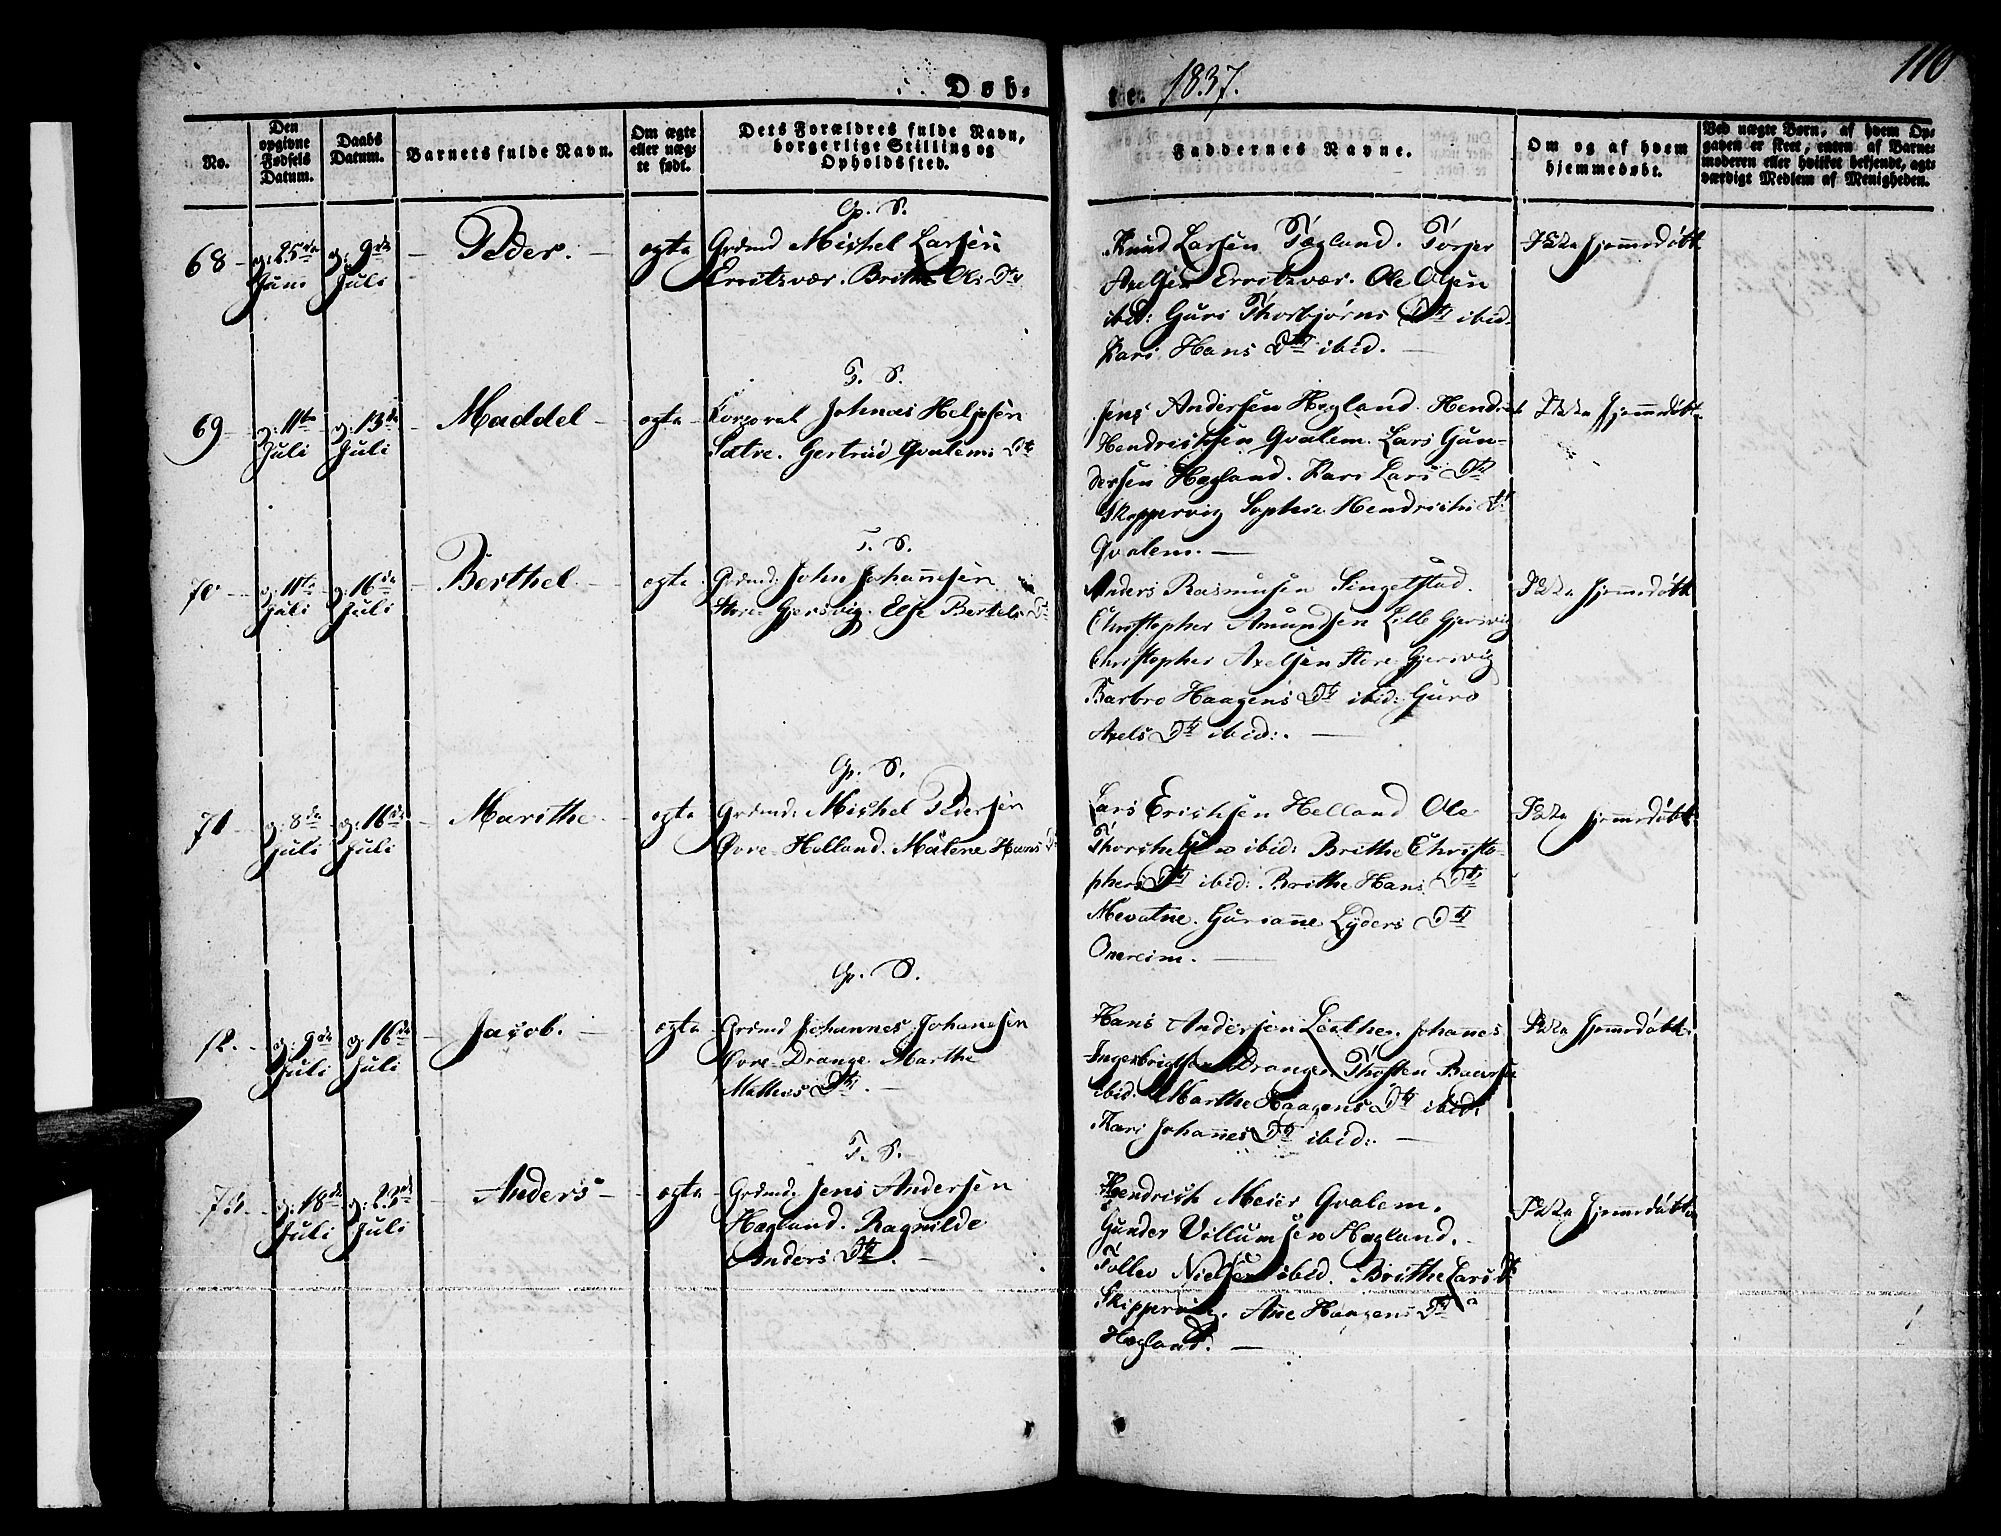 Døb-
te. 1837.
116
No.
Den
opgivne
Fødsels
Datum.
Daabs
Datum.
Barnets fulde Navn.
Om ægte
eller uæg-
te født.
Dets Forældres fulde Navn,
borgerlige Stilling og
Opholdssted.
Faddernes Navne.
Om og af hvem
hjemmedøbt.
Ved uægte Børn, af hvem Op-
gaven er skeet, enten af Barne-
moderen eller hvilket bekjendt, agt-
værdigt Medlem af Menigheden.
G. S.
68 - g: 25de
Juni
g: 9de
Juli
- Peder. -
egte
Grdmd Michel Larsen
Ervitsvær. Brithe Ols Dtr
Knud Larsen Tægland. Torger
Axelsen Ervitsvær. Ole Olsen
ibid: Guri Thorbjørns Dtr ibid.
Kari Hans Dtr ibid. -
Ikke hjemmedøbt
T. S.
69 - g: 11te
Juli
g: 13de
Juli
Maddel -
egte
Korporal Johnas Heljesen
Sætre. Gertrud Qvalems Dtr
Jens Andersen Høgland. Hendrich
Hendrichsen Qvalem. Lars Gun-
dersen Høgland. Kari Lars Dtr
Skippervig Sophie Hendrichs Dtr
Qvalem. -
Ikke hjemmedøbt
T. S.
70 - g: 11te
Juli
g: 16de
Juli
- Berthel -
egte
Grdmd: John Johannesen
Store Gjersvig. Else Bertels Dtr
Anders Rasmusen Singelstad.
Christopher Amundsen Lille Gjersvig
Christopher Axelsen Store Gjersvig
Barbro Haagens Dtr ibid: Guro
Axels Dtr ibid:. -
Ikke hjemmedøbt
G. S.
71 - g: 8de
Juli
g: 16de
Juli
- Marithe -
egte
Grdmd: Michel Pedersen
Øvre Helland. Malene Hans Dtr
Lars Erichsen Helland Ole
Thorchelsen ibid: Brithe Christo-
phers Dtr ibid: Brithe Hans Dtr
Mevatne. Gurianne Lyders Dtr
Onereim. -
Ikke hjemmedøbt
G. S.
g: 9de
Juli
g: 16de
Juli
- Jacob. -
egte
Grdmd Johannes Johanesen
Øvre Drange. Marthe
Dtr. -
Hans Andersen Johannes
Ingebrigtsen Drange
ibid: Marthe Haagens Dtr ibid:
Kari Johannes Dtr ibid: -
Ikke hjemmedøbt
T. S.
g: 18de
Juli
g: 23de
Juli
- Anders -
egte
Grdmd: Jens Andersen
Høgland. Ragnilde
Anders Dtr. -
Hendrich Meier Qvalem.
Gunder Villumsen Høgland.
Tollev Nielsen ibid. Brithe Lars Dtr
Skippervig. Ane Haagens Dtr
Høgland. -
Ikke hjemmedøbt